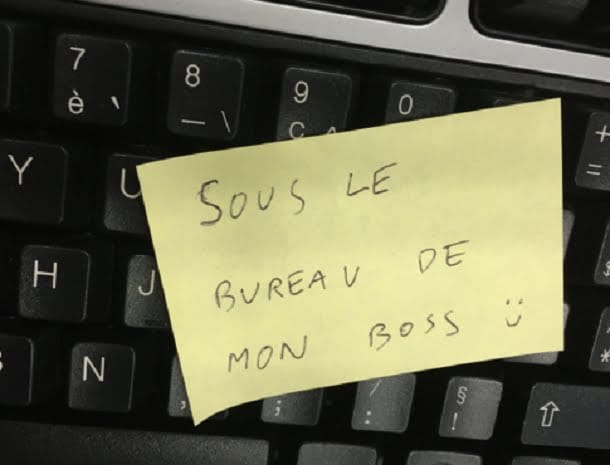 7
è `
8
_ \
9
ç ^
0
+
=
Y
U
SOUS LE
H
J
BUREAU DE
MON BOSS :)
N
,
;
/
:
§
!
*
⇧